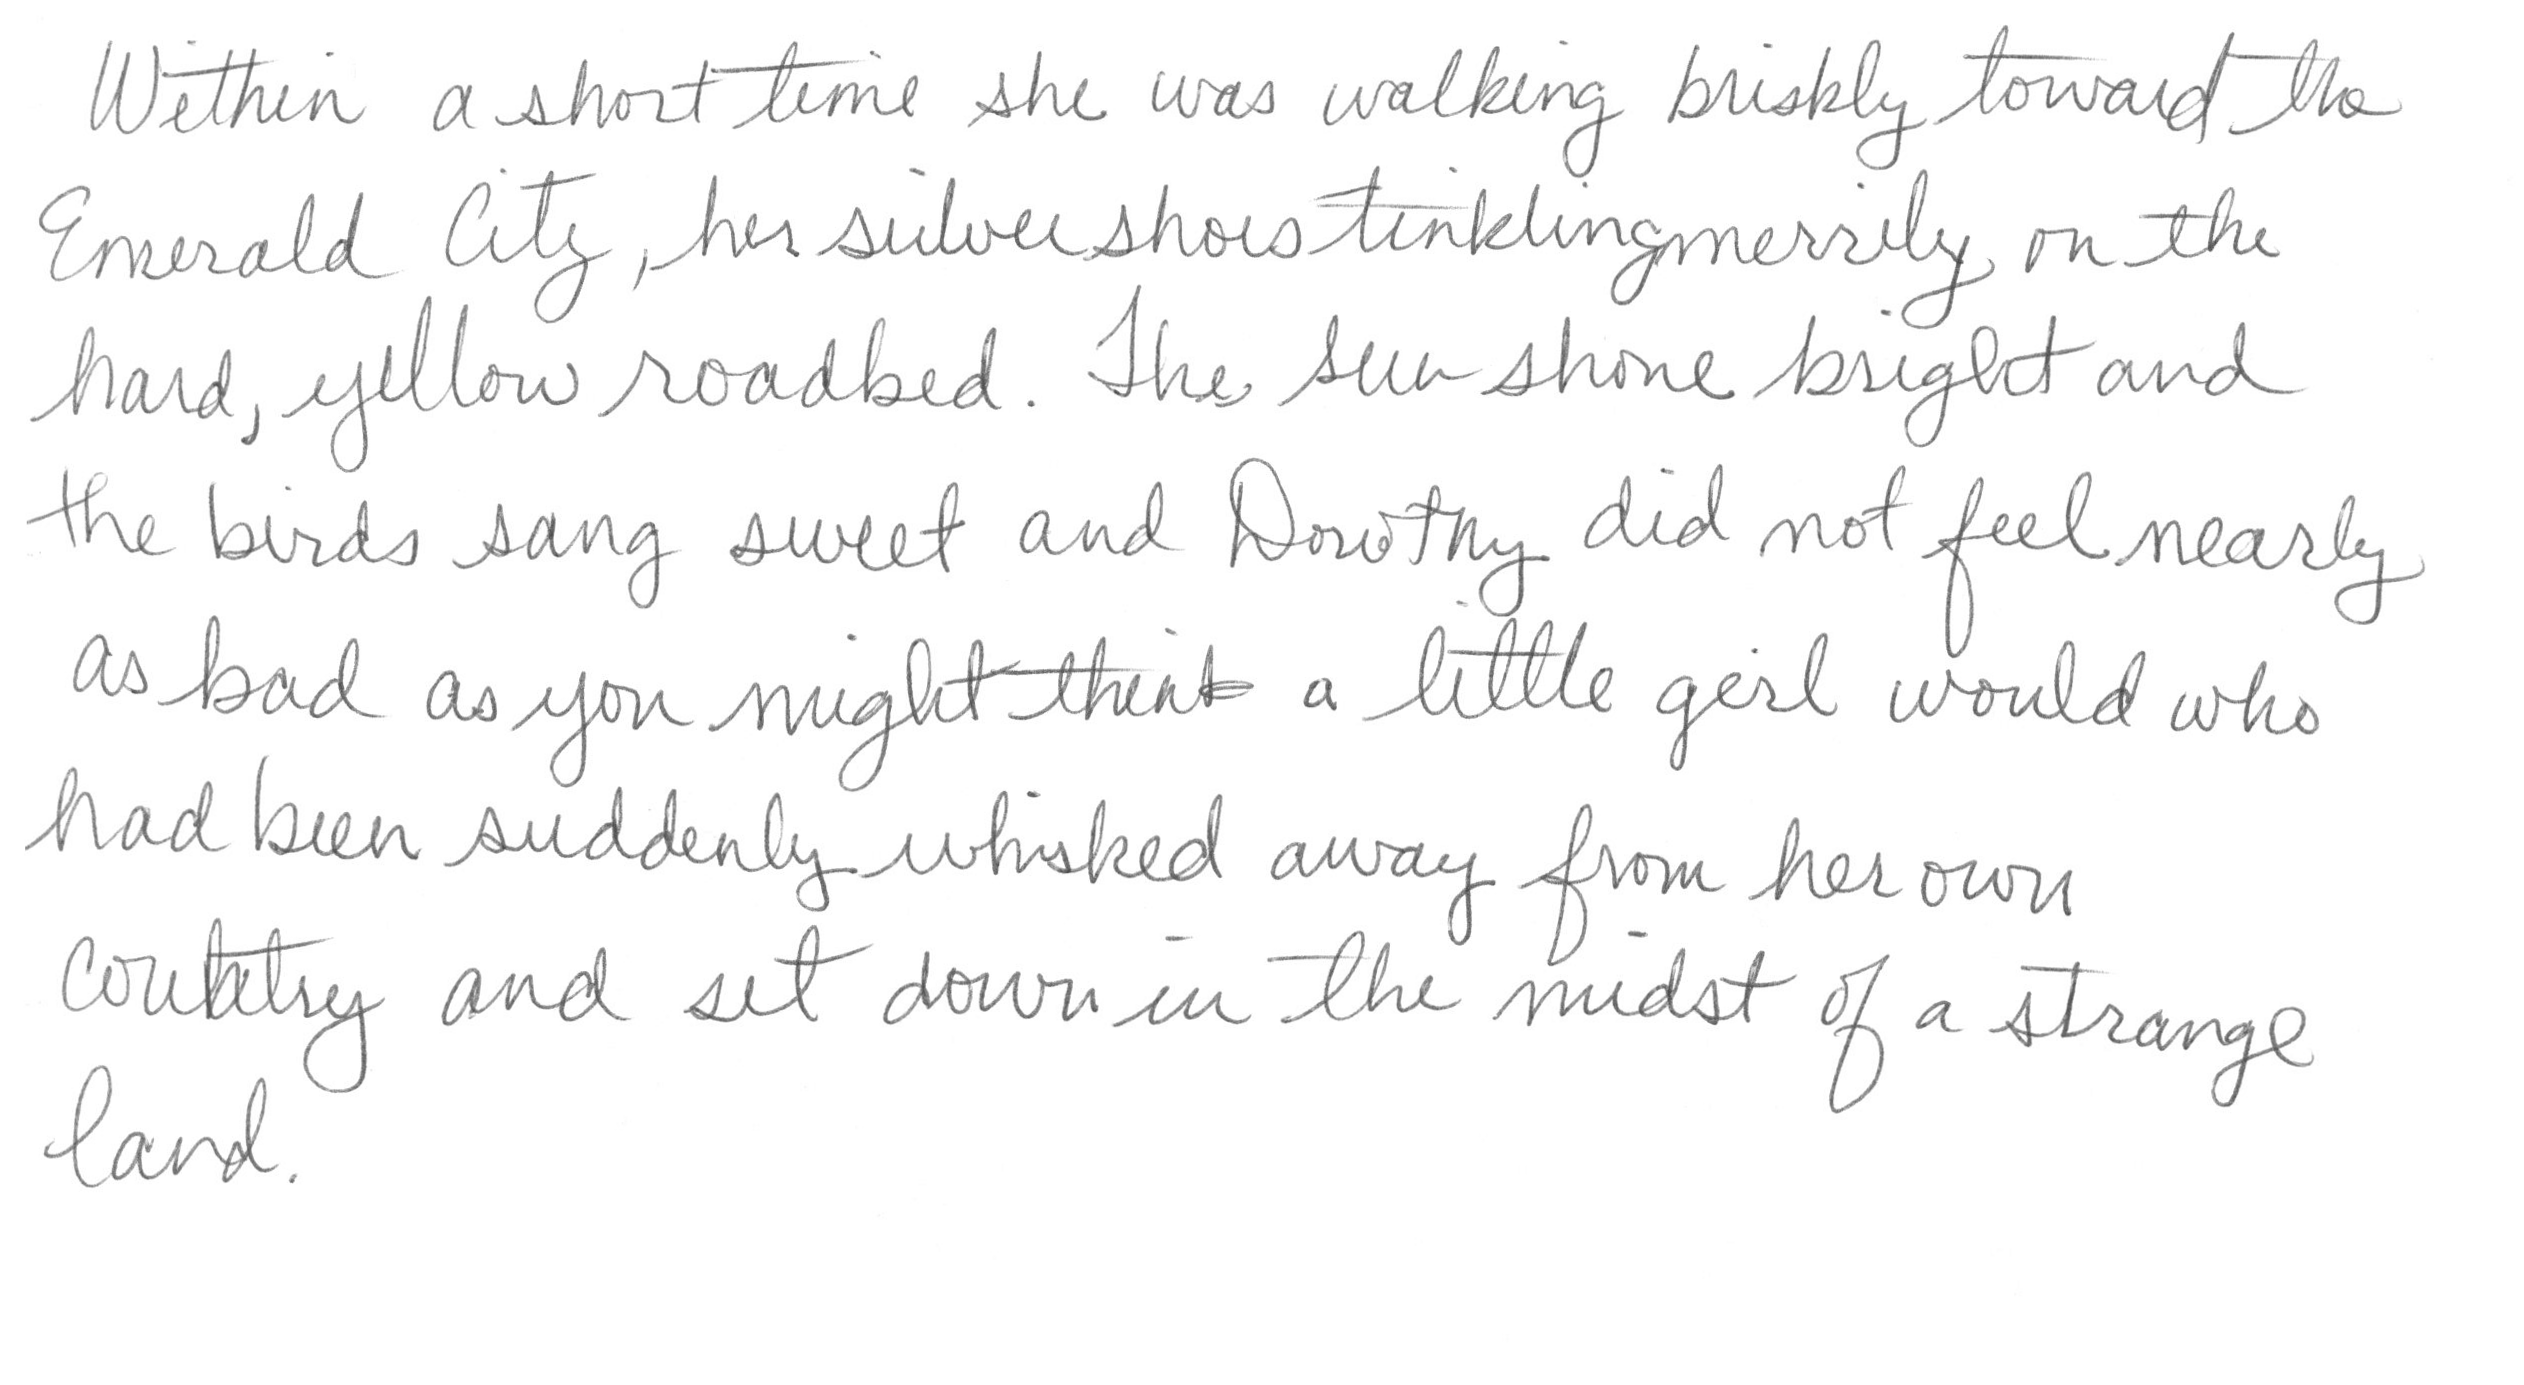 Within a short time she was walking briskly toward the
Emerald City, her silver shoes tinkling merrily on the
hard, yellow roadbed. The sun shone bright and
the birds sang sweet and Dorothy did not feel nearly
as bad as you might think a little girl would who
had been suddenly whisked away from her own
country and set down in the midst of a strange
land.